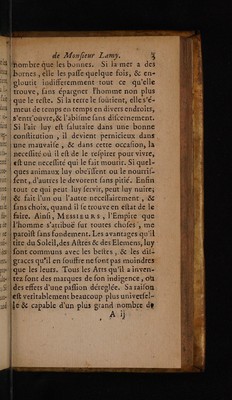 de Monsieur Lamy. 3
nombre que les bonnes. Si la mer a des
bornes, elle les passe quelque fois, & en-
gloutit indifferemment tout ce qu'elle
trouve, sans épargner l'homme non plus
que le reste. Si la terre le soûtient, elle s'é-
meut de temps en temps en divers endroits,
s'entr'ouvre, & l'abîme sans discernement.
Si l'air luy est salutaire dans une bonne
constitution, il devient pernicieux dans
une mauvaise, & dans cette occasion, la
necessité où il est de le respirer pour vivre,
est une necessité qui le fait mourir. Si quel-
ques animaux luy obeïssent ou le nourris-
sent, d'autres le devorent sans pitié. Enfin
tout ce qui peut luy servir, peut luy nuire;
& fait l'un ou l'autre necessairement, &
sans choix, quand il se trouve en estat de le
faire. Ainsi, MESSIEURS, l'Empire que
l'homme s'atribuë sur toutes choses, me
paroist sans fondement. Les avantages qu'il
tire du Soleil, des Astres & des Elemens, luy
sont communs avec les bestes, & les dis-
graces qu'il en souffre ne sont pas moindres
que les leurs. Tous les Arts qu'il a inven-
tez sont des marques de son indigence, ou
des effets d'une passion déreglée. Sa raison
est veritablement beaucoup plus universel-
le & capable d'un plus grand nombre de
A ij